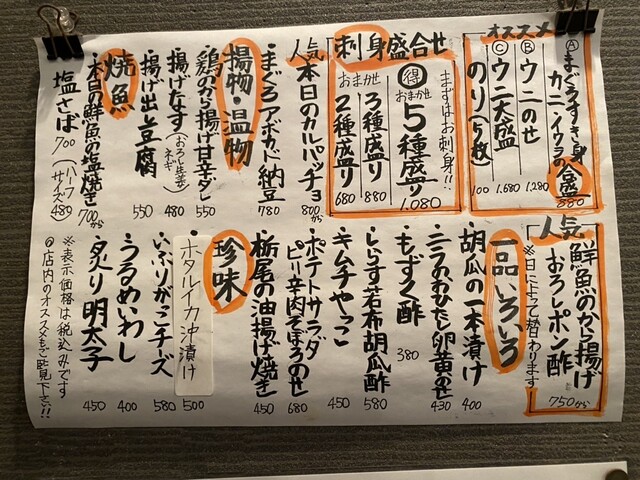 オススメ
Ⓐまぐろすき身
カニ・イクラの合盛 880
Ⓑウニのせ 1.280
Ⓒウニ大盛 1.680
のり(5枚) 100
刺身盛合せ
まずはお刺身!!
得 おまかせ 5種盛り 1.080
おまかせ
3種盛り 880
2種盛り 680
人気 本日のカルパッチョ 800から
・まぐろアボカド納豆 780
揚物・温物
・鶏のから揚げ甘辛ダレ 550
・揚げなす(おろし生姜ネギ) 480
・揚げ出し豆腐 550
焼魚
・本日の鮮魚の塩焼き 700から
・塩さば 700 (ハーフサイズ 480)
人気
鮮魚のから揚げ
おろしポン酢 750から
※日によって替わります
一品いろいろ
・胡瓜の一本漬け 400
・ニラのおひたし卵黄のせ 430
・もずく酢 380
・しらす若布胡瓜酢 580
・キムチやっこ 450
・ポテトサラダ
ピリ辛肉そぼろのせ 680
・栃尾の油揚げ焼き 450
珍味
ホタルイカ沖漬け 500
・いぶりがっこチーズ 580
・うるめいわし 400
・炙り明太子 450
※表示価格は税込みです
◎店内のオススメもご覧下さい!!